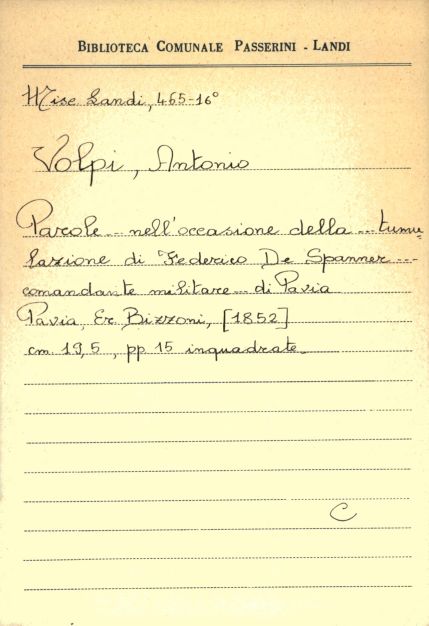 BIBLIOTECA COMUNALE PASSERINI - LANDI
Misc Landi, 465-16°
Volpi, Antonio
Parole... nell'occasione della... tumu
lazione di Federico De Spanner...
comandante militare... di Pavia
Pavia, Er. Bizzoni, [1852]
cm. 19,5, pp 15 inquadrate.
C